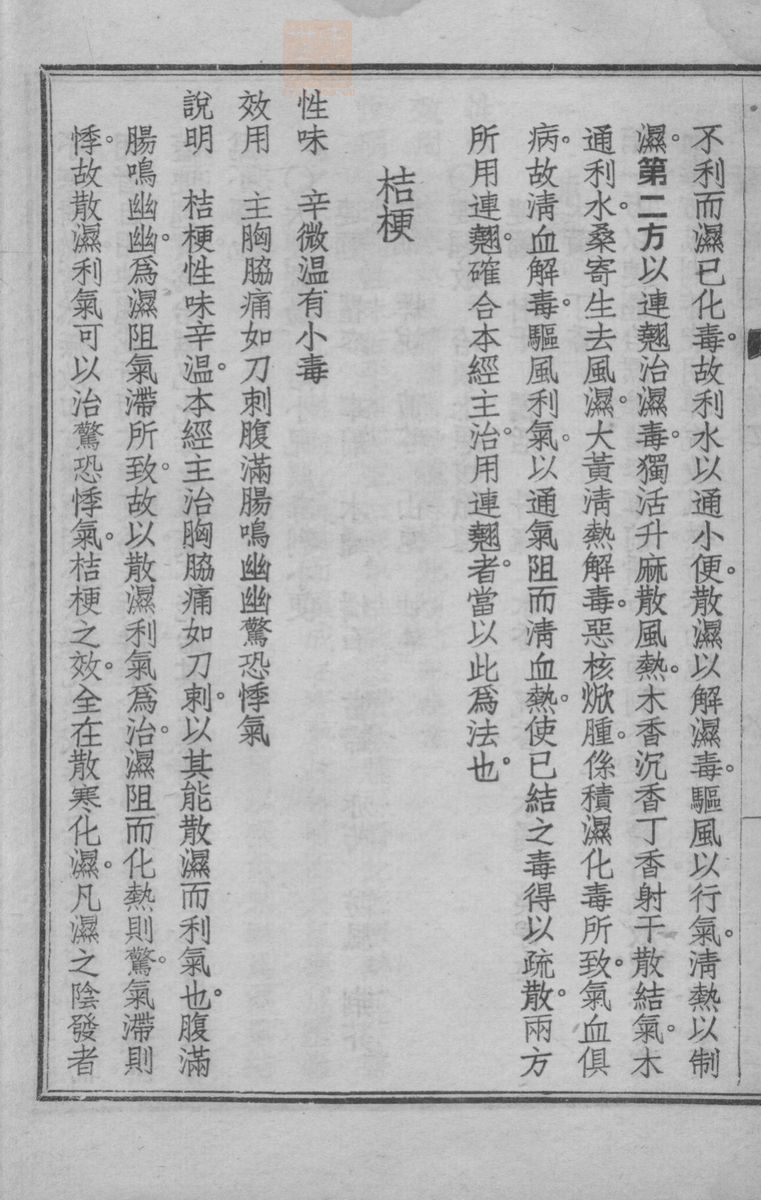 不利而濕已化毒。故利水以通小便。散濕以解濕毒。驅風以行氣。淸熱以制
濕。第二方以連翹治濕毒。獨活升麻散風熱。木香沉香丁香射干散結氣。木
通利水。桑寄生去風濕。大黃淸熱解毒。惡核焮腫。係積濕化毒所致。氣血俱
病。故淸血解毒。驅風利氣。以通氣阻而淸血熱。使已結之毒得以疏散。兩方
所用連翹。確合本經主治。用連翹者。當以此爲法也。
桔梗
性味　辛微温有小毒
效用　主胸脇痛如刀刺腹滿腸鳴幽幽驚恐悸氣
說明　桔梗性味辛温。本經主治胸脇痛如刀刺。以其能散濕而利氣也。腹滿
腸鳴幽幽。爲濕阻氣滯所致。故以散濕利氣爲治。濕阻而化熱則驚。氣滯則
悸。故散濕利氣可以治驚恐悸氣。桔梗之效。全在散寒化濕。凡濕之陰發者